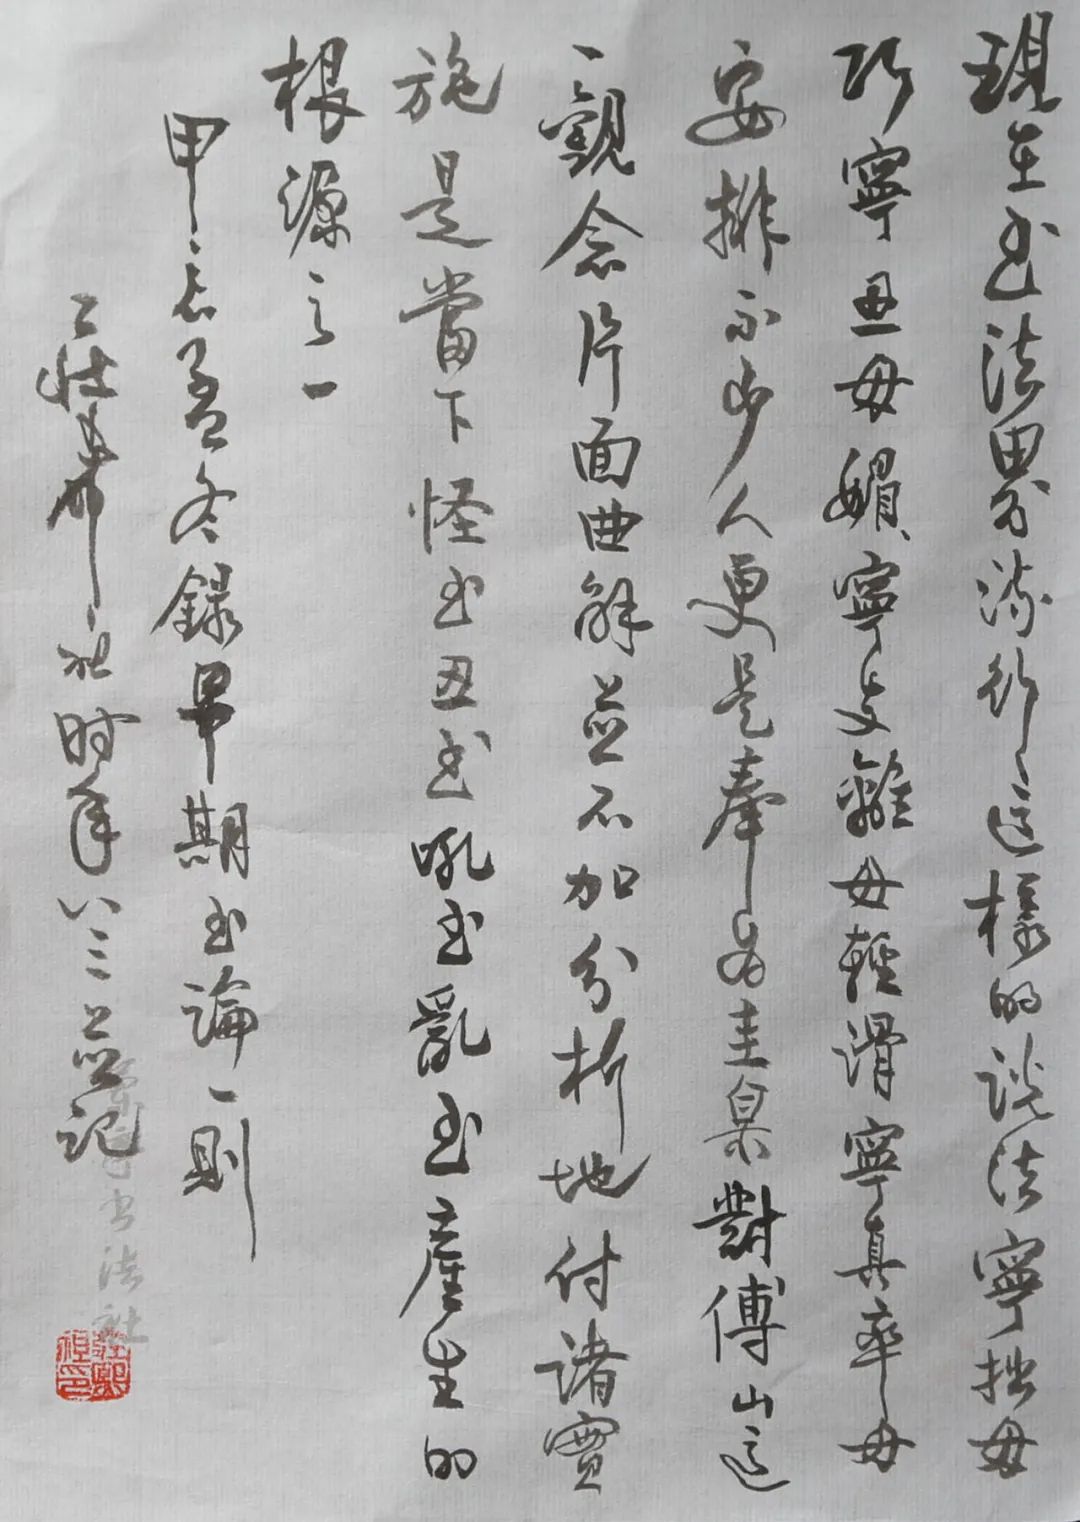 現在书法界流行这樣的说法寧拙毋
巧寧丑毋媚寧支離毋輕滑寧真率毋
安排不少人更是奉为圭臬對傅山这
一觀念片面曲解並不加分析地付诸實
施是當下怪书丑书吼书亂书產生的
根源之一
甲辰孟冬錄早期书論一則
时年八三並记
书法社